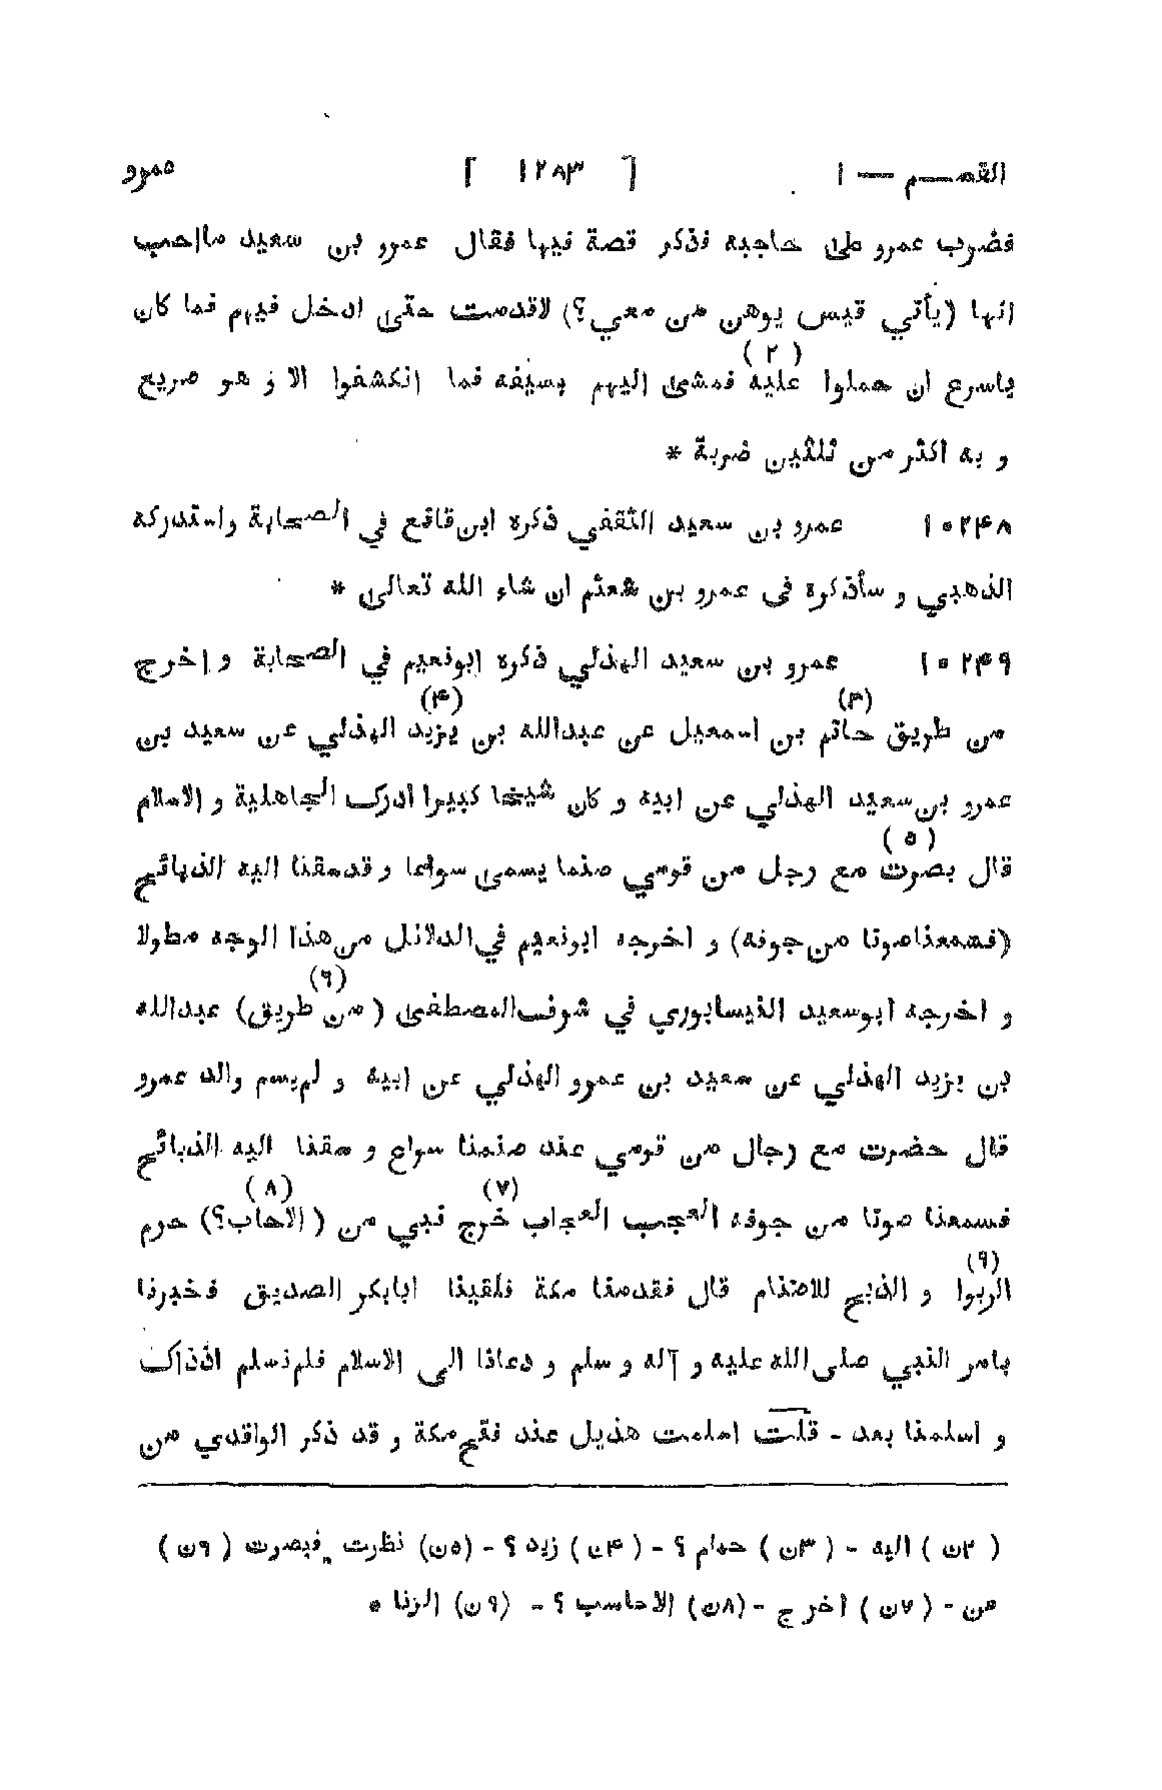 القسم — ١ [ ١٢٨٣ ] عمرو
فضرب عمرو على حاجبه فذكر قصة فيها فقال عمرو بن سعيد مااحب
انها (يأتي قيس يوهن من معي؟) لاقدمت حتى ادخل فيهم فما كان
باسرع ان حملوا عليه (٢) فمشى اليهم بسيفه فما انكشفوا الا و هو صريع
و به اكثر من ثلثين ضربة *
١٠٢۴٨ عمرو بن سعيد الثقفي ذكره ابن قانع في الصحابة واستدركه
الذهبي و سأذكره فى عمرو بن شعثم ان شاء الله تعالى *
١٠٢۴٩ عمرو بن سعيد الهذلي ذكره ابونعيم في الصحابة و اخرج
من طريق حاتم (٣) بن اسمعيل عن عبدالله بن يزيد (۴) الهذلي عن سعيد بن
عمرو بن سعيد الهذلي عن ابيه و كان شيخا كبيرا ادرك الجاهلية و الاسلام
قال بصرت (٥) مع رجل من قومي صنما يسمى سواعا و قدسقنا اليه الذبائح
(فسمعناصوتا من جوفه) و اخرجه ابونعيم في الدلائل من هذا الوجه مطولا
و اخرجه ابوسعيد النيسابوري في شرف المصطفى (من طريق) (٦) عبدالله
بن يزيد الهذلي عن سعيد بن عمرو الهذلي عن ابيه و لم يسم والد عمرو
قال حضرت مع رجال من قومي عند صنمنا سواع و سقنا اليه الذبائح
فسمعنا صوتا من جوفه العجب العجاب خرج (٧) نبي من (الاحاب؟) (٨) حرم
الربوا (٩) و الذبح للاصنام قال فقدمنا مكة فلقينا ابابكر الصديق فخبرنا
بامر النبي صلى الله عليه و آله و سلم و دعانا الى الاسلام فلم نسلم اذذاك
و اسلمنا بعد - قلت اسلمت هذيل عند فتح مكة و قد ذكر الواقدي من
(٢ن) اليه - (٣ن) حمام ؟ - (۴ن) زيد ؟ - (٥ن) نظرت فبصرت (٦ن)
من - (٧ن) اخرج - (٨ن) الاحاسب ؟ - (٩ن) الزنا *